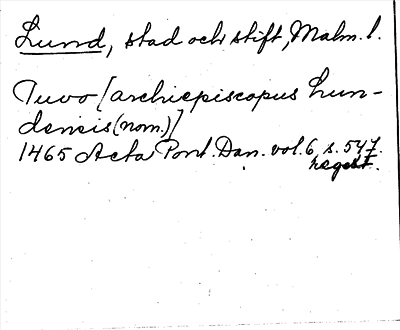 Lund, stad och stift, Malm. l.
Tuvo [archiepiscopus Lun-
densis (nom.)]
1465 Acta Pont. Dan. vol. 6 s. 547.
regest.